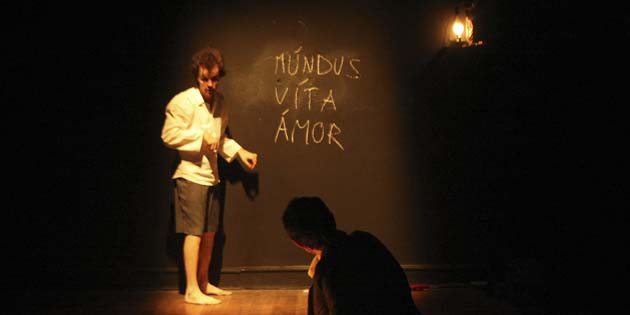 MÚNDUS
VÍTA
ÁMOR